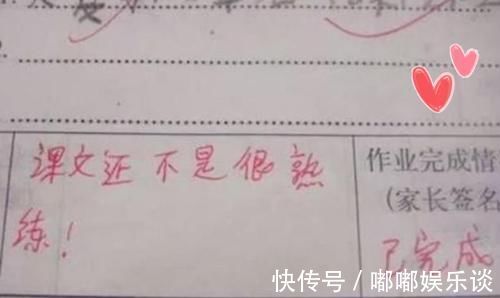 课文还不是很熟
练!
作业完成情
(家长签名
已完成
快传号/嘟嘟娱乐谈